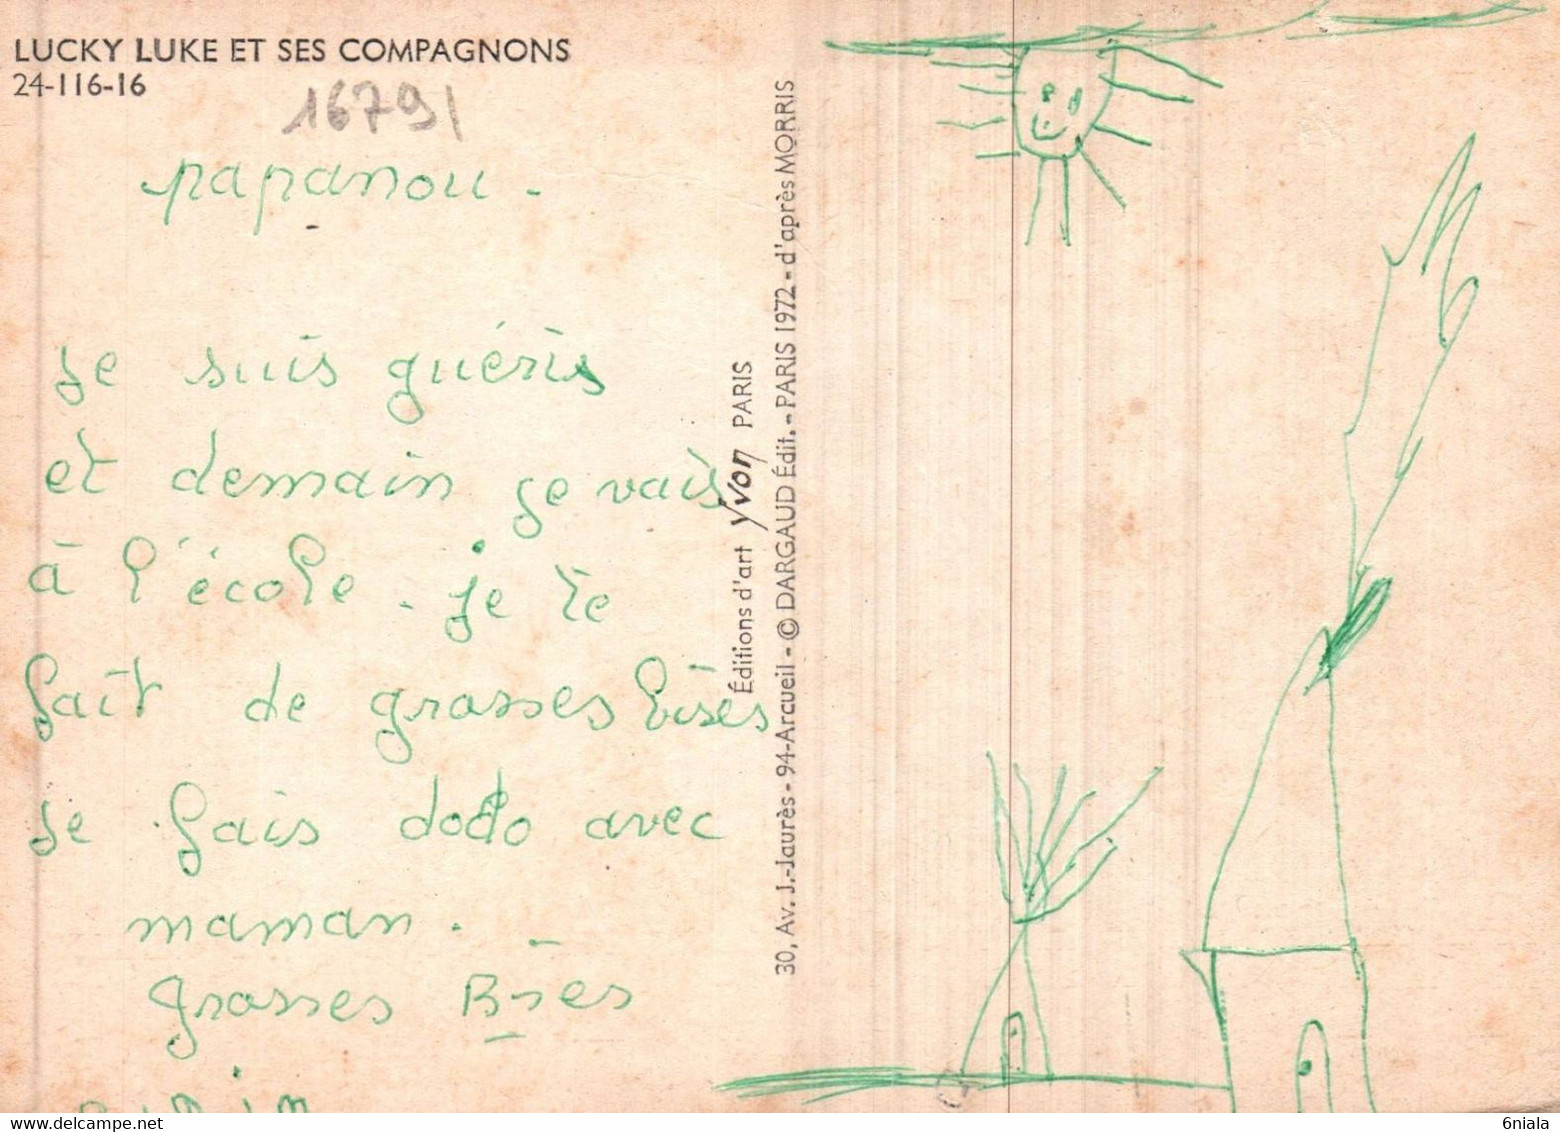 LUCKY LUKE ET SES COMPAGNONS
24-116-16
16791
papanou -
je suis guéris
et demain je vais
à l'école. je te
fait de grosses bises
je fais dodo avec
maman.
grosses Bises
Éditions d'art yvon PARIS
30, Av. J.-Jaurès - 94-Arcueil - © DARGAUD Édit. - PARIS 1972 - d'après MORRIS
delcampe.net
6niala